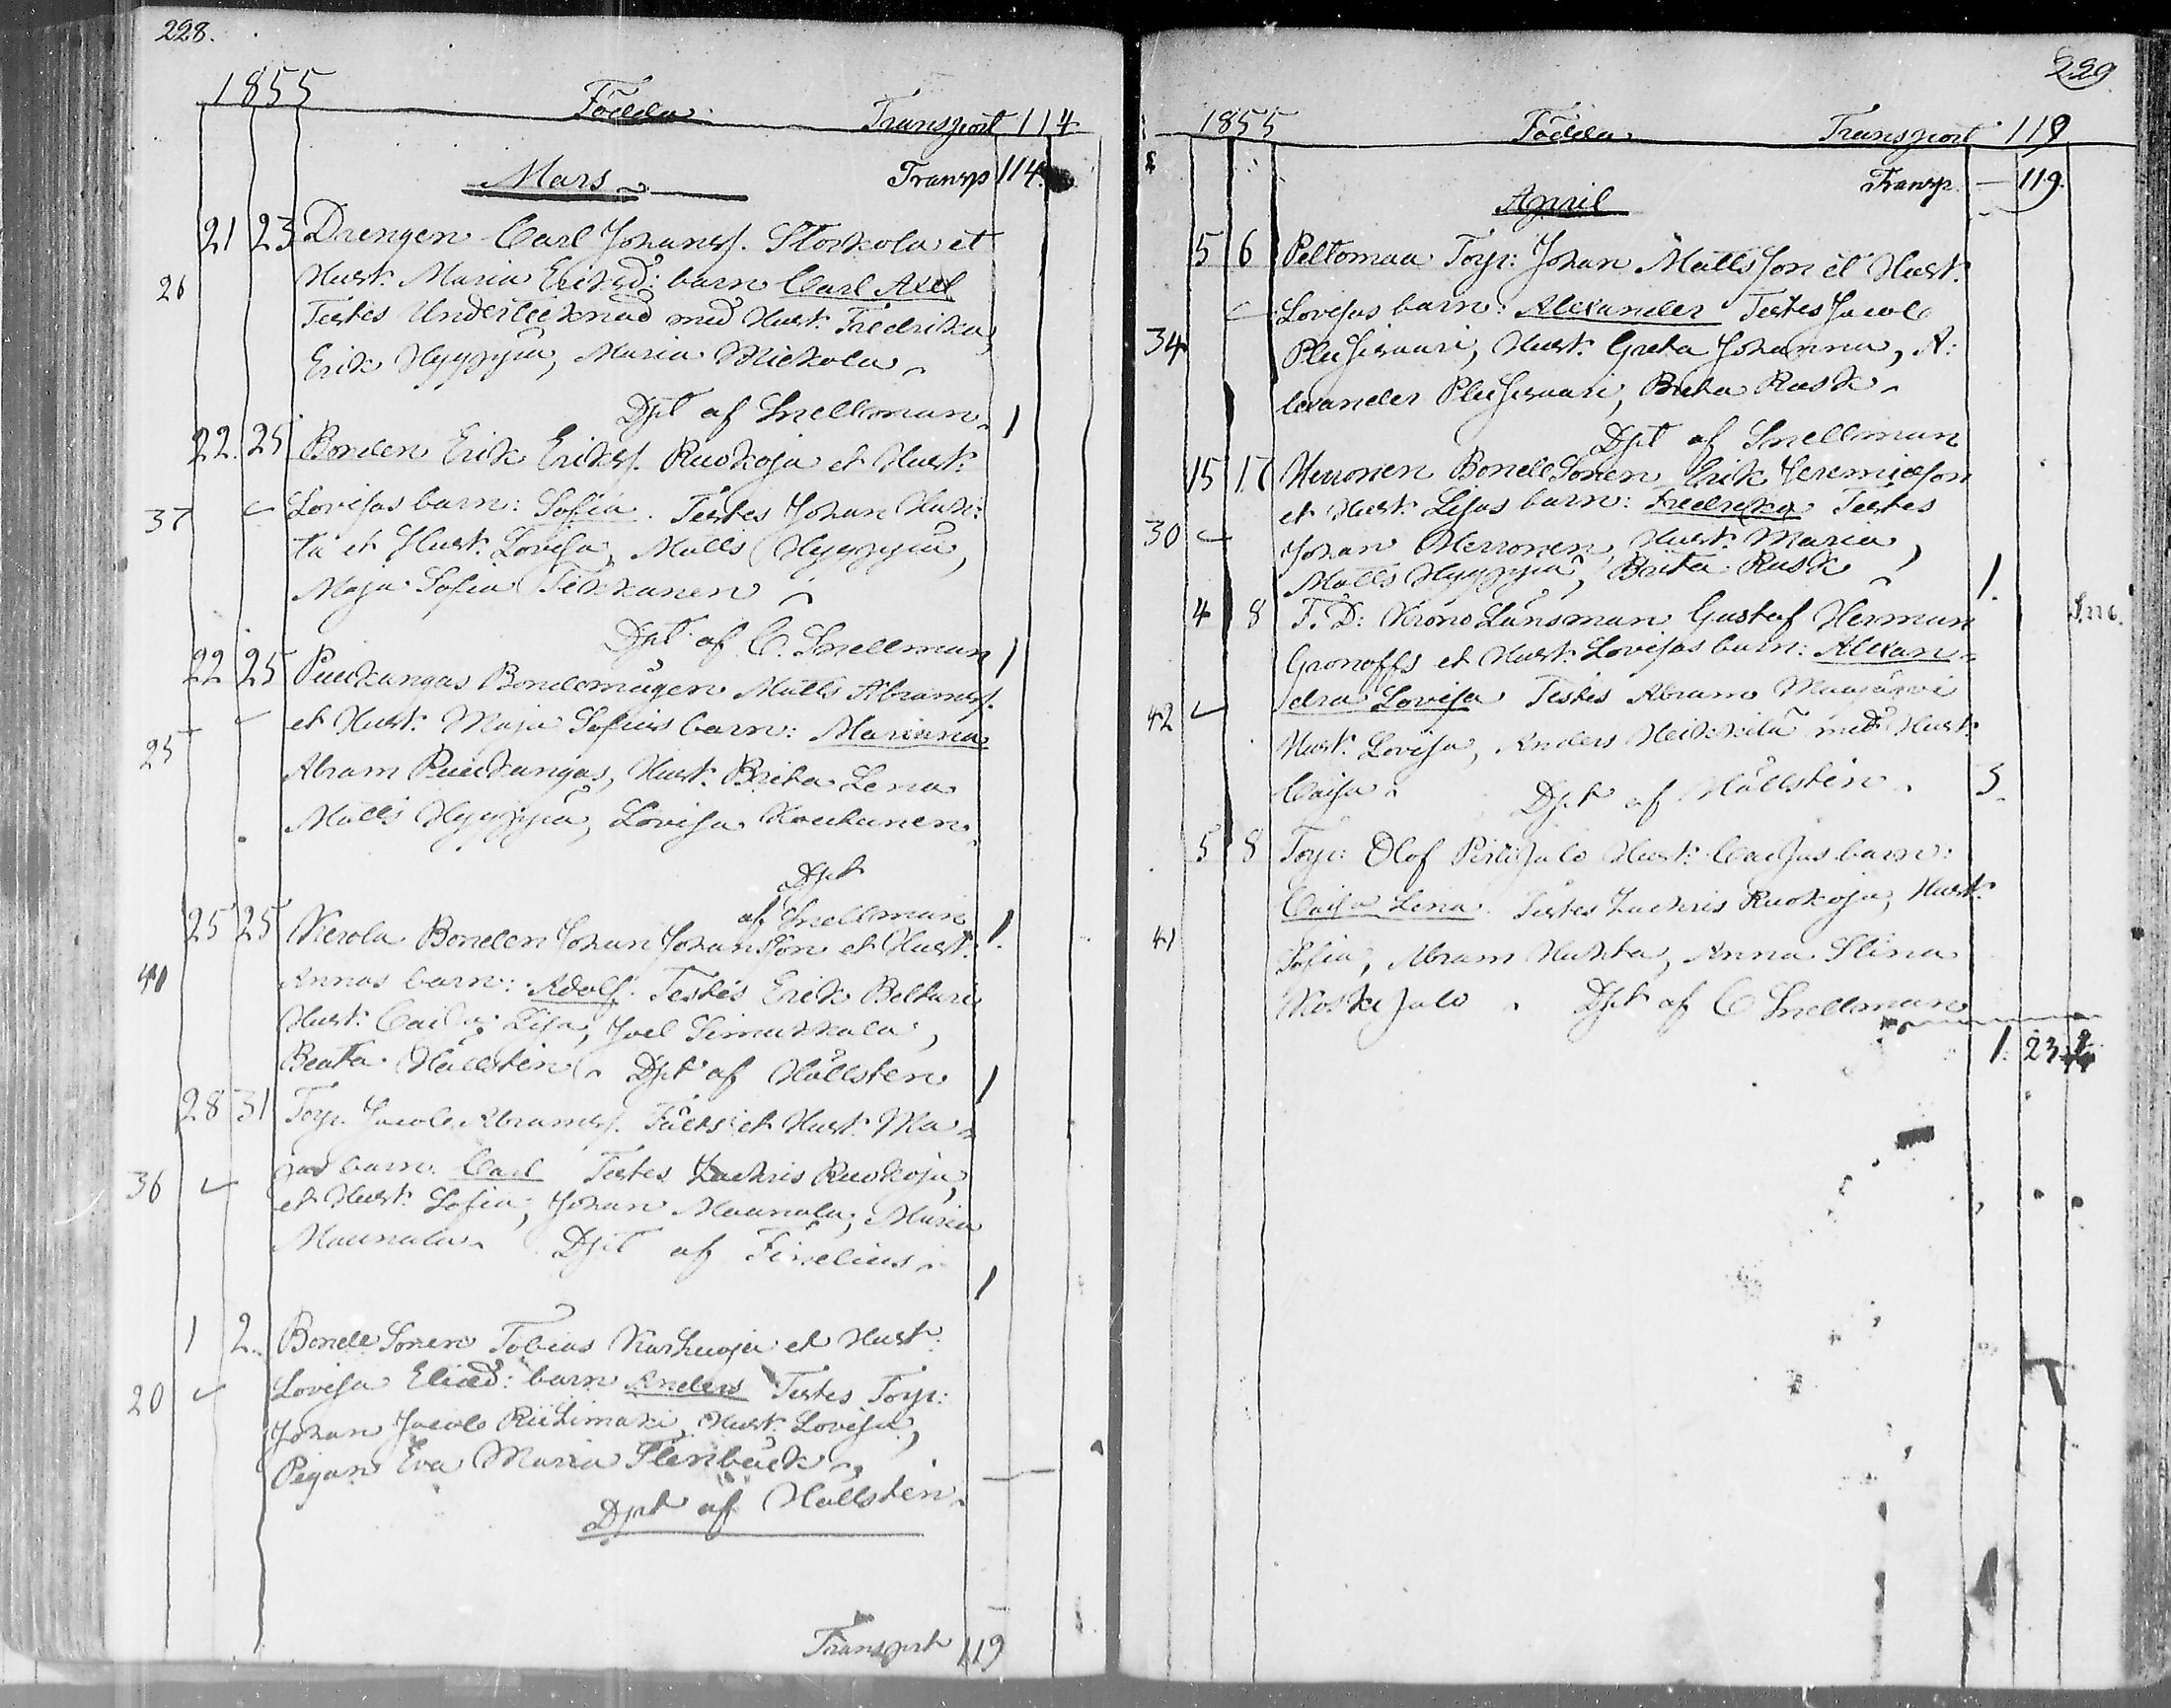 228.
1855 Födda Transport 114
Mars Transp 114
21 23 Drengen Carl Johanss. Storkola et
26 Hust. Maria Eriksd: barn Carl Axel
Testes Undertecknad med Hust. Fredrika,
Erik Hyyppä, Maria Mickola
Dpt af Snellman 1
22. 25 Bonden Erik Eriks. Ruokoja et Hust.
37 Lovisas barn: Sofia. Testes Johan Huh:
ta et Hust. Lovisa, Matts Hyyppä,
Maja Sofia Tikkanen
Dpt af C. Snellman 1
22 25 Puukangas Bondemågen Matts Abramss.
et Hust. Maja Sofias barn: Marianna
25 Abram Puukangas, Hust. Brita Lena
Matts Hyyppä, Lovisa Kauhanen
Dpt
af Snellman 1.
25 25 Kerola Bonden Johan Johansson et Hust.
40 Annas barn: Adolf. Testes Erik Beltari
Hust. Caisa Lisa, Joel Simukkala,
Beata Hällsten Dpt af Hällsten 1
28 31 Torp. Jacob Abramss. Fäers et Hust. Ma-
36 jas barn. Carl Testes Zachris Ruokoja,
et Hust. Sofia, Johan Maunula, Maria
Maunula. Dpt af Finelius 1
1 2. Bonde Sonen Tobias Karhuoja et Hust.
20 Lovisa Eliæd: barn Anders Testes Torp:
Johan Jacob Riihimaki, Hust. Lovisa,
Pigan Eva Maria Stenbäck
Dpt af Hällsten
Transport 119
229
1855 Födda Transport 119
Transp. 119.
April
5 6 Peltomaa Torp: Johan Mattsson et Hust.
Lovisas barn: Alexander Testes Jacob
34 Hust. Greta Johanna, A:
lexander Brita Rask
Dpt af Snellman
15 17 Herronen Bonde Sonen Erik Jeremiæson
et Hust. Lisas barn: Fredrika Testes
30 Johan Herronen, Hust. Maria,
Matts Hyyppä, Brita Rask 1.
4 8 T. D: Krono Länsman Gustaf Herman
Gronoffs et Hust. Lovisas barn: Alexan-
42 dra Lovisa Testes Abram Maajärvi
Hust. Lovisa, Anders Heikkilä med Hust.
Caisa. Dpt af Hällsten.
5 8 Torp: Olof Perisalo Hust: Caisas barn:
Caisa Lena. Testes Zachris Ruokoja, Hust.
41 Sofia, Abram Huhta, Anna Stina
Koskisalo Dpt af C Snellman
1. 23